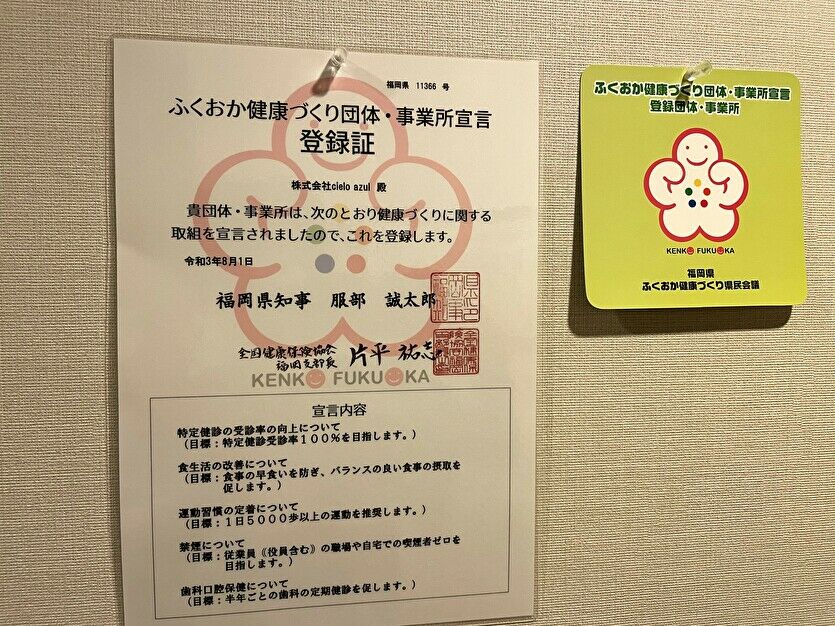 福岡県 11366 号
ふくおか健康づくり団体・事業所宣言
登録証
株式会社cielo azul 殿
貴団体・事業所は、次のとおり健康づくりに関する
取組を宣言されましたので、これを登録します。
令和3年8月1日
福岡県知事 服部 誠太郎
全国健康保険協会
福岡支部長 片平 祐志
KENKO FUKUOKA
宣言内容
特定健診の受診率の向上について
(目標:特定健診受診率100%を目指します。)
食生活の改善について
(目標:食事の早食いを防ぎ、バランスの良い食事の摂取を
促します。)
運動習慣の定着について
(目標:1日5000歩以上の運動を推奨します。)
禁煙について
(目標:従業員《役員含む》の職場や自宅での喫煙者ゼロを
目指します。)
歯科口腔保健について
(目標:半年ごとの歯科の定期健診を促します。)
ふくおか健康づくり団体・事業所宣言
登録団体・事業所
KENKO FUKUOKA
福岡県
ふくおか健康づくり県民会議